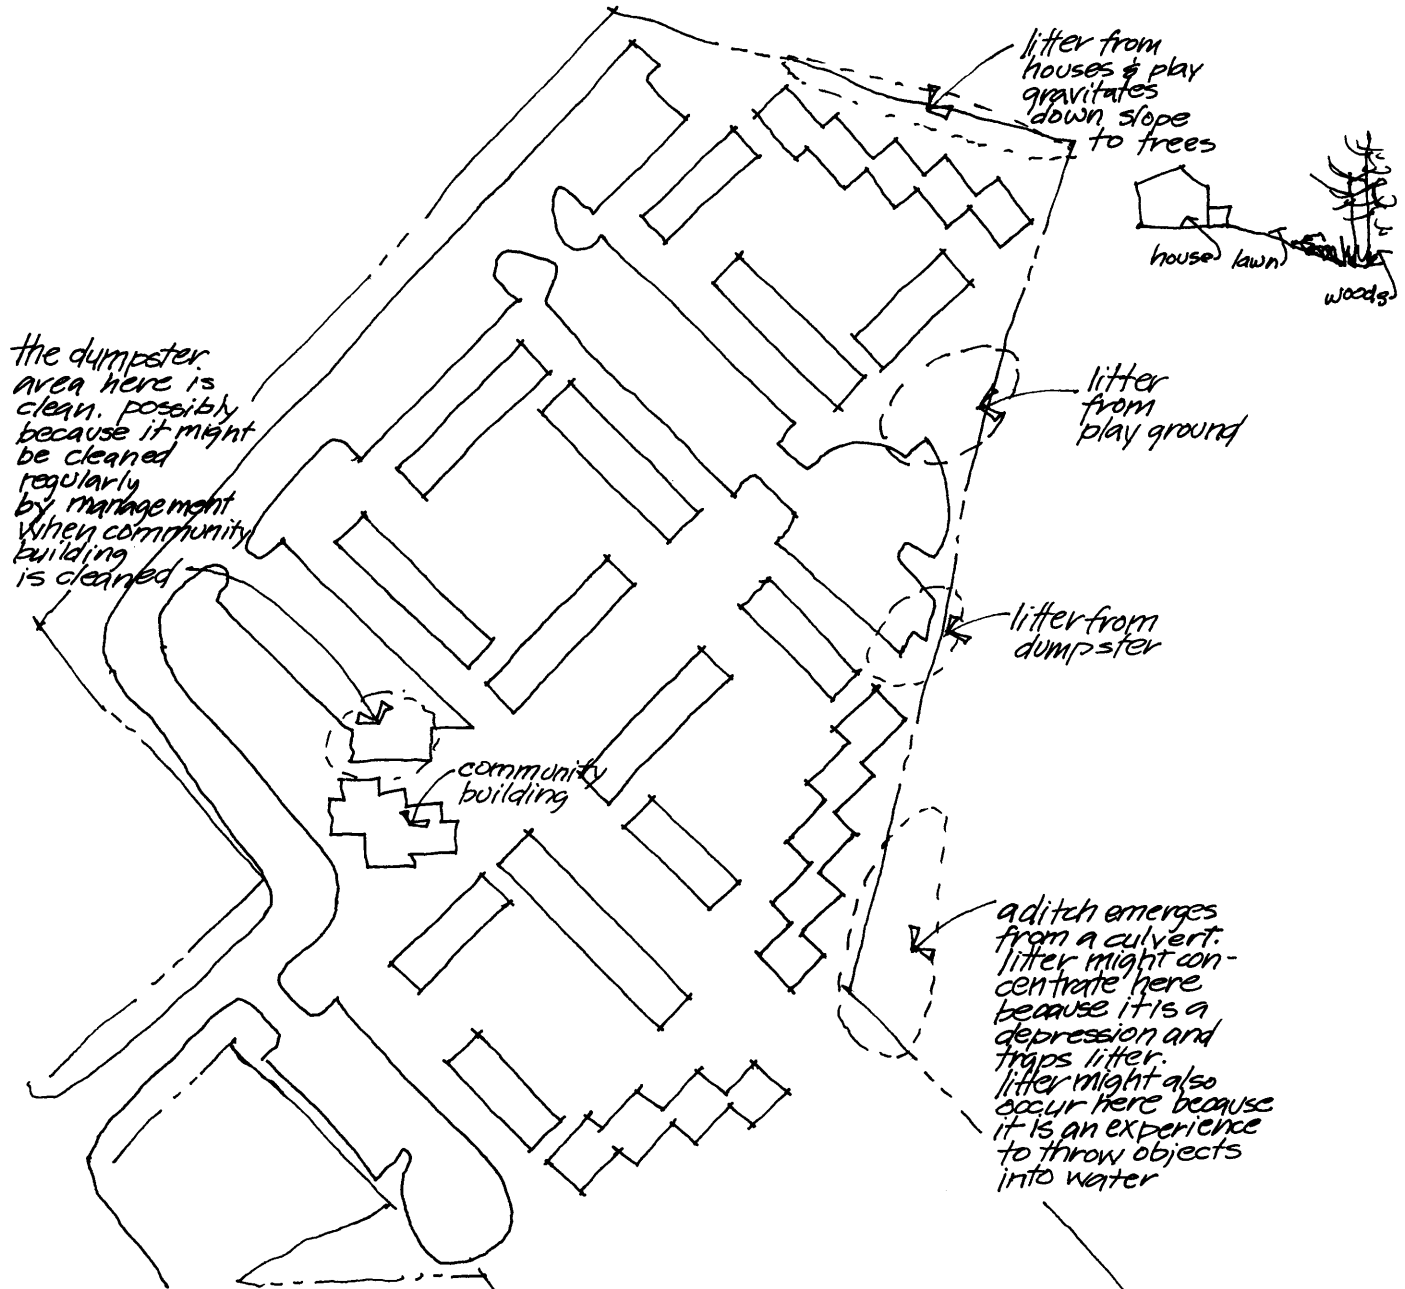 litter from
houses & play
gravitates
down slope
to trees
house
lawn
woods
the dumpster
area here is
clean. possibly
because it might
be cleaned
regularly
by management
when community
building
is cleaned
litter
from
play ground
litter from
dumpster
community
building
a ditch emerges
from a culvert.
litter might con-
centrate here
because it is a
depression and
traps litter.
litter might also
occur here because
it is an experience
to throw objects
into water